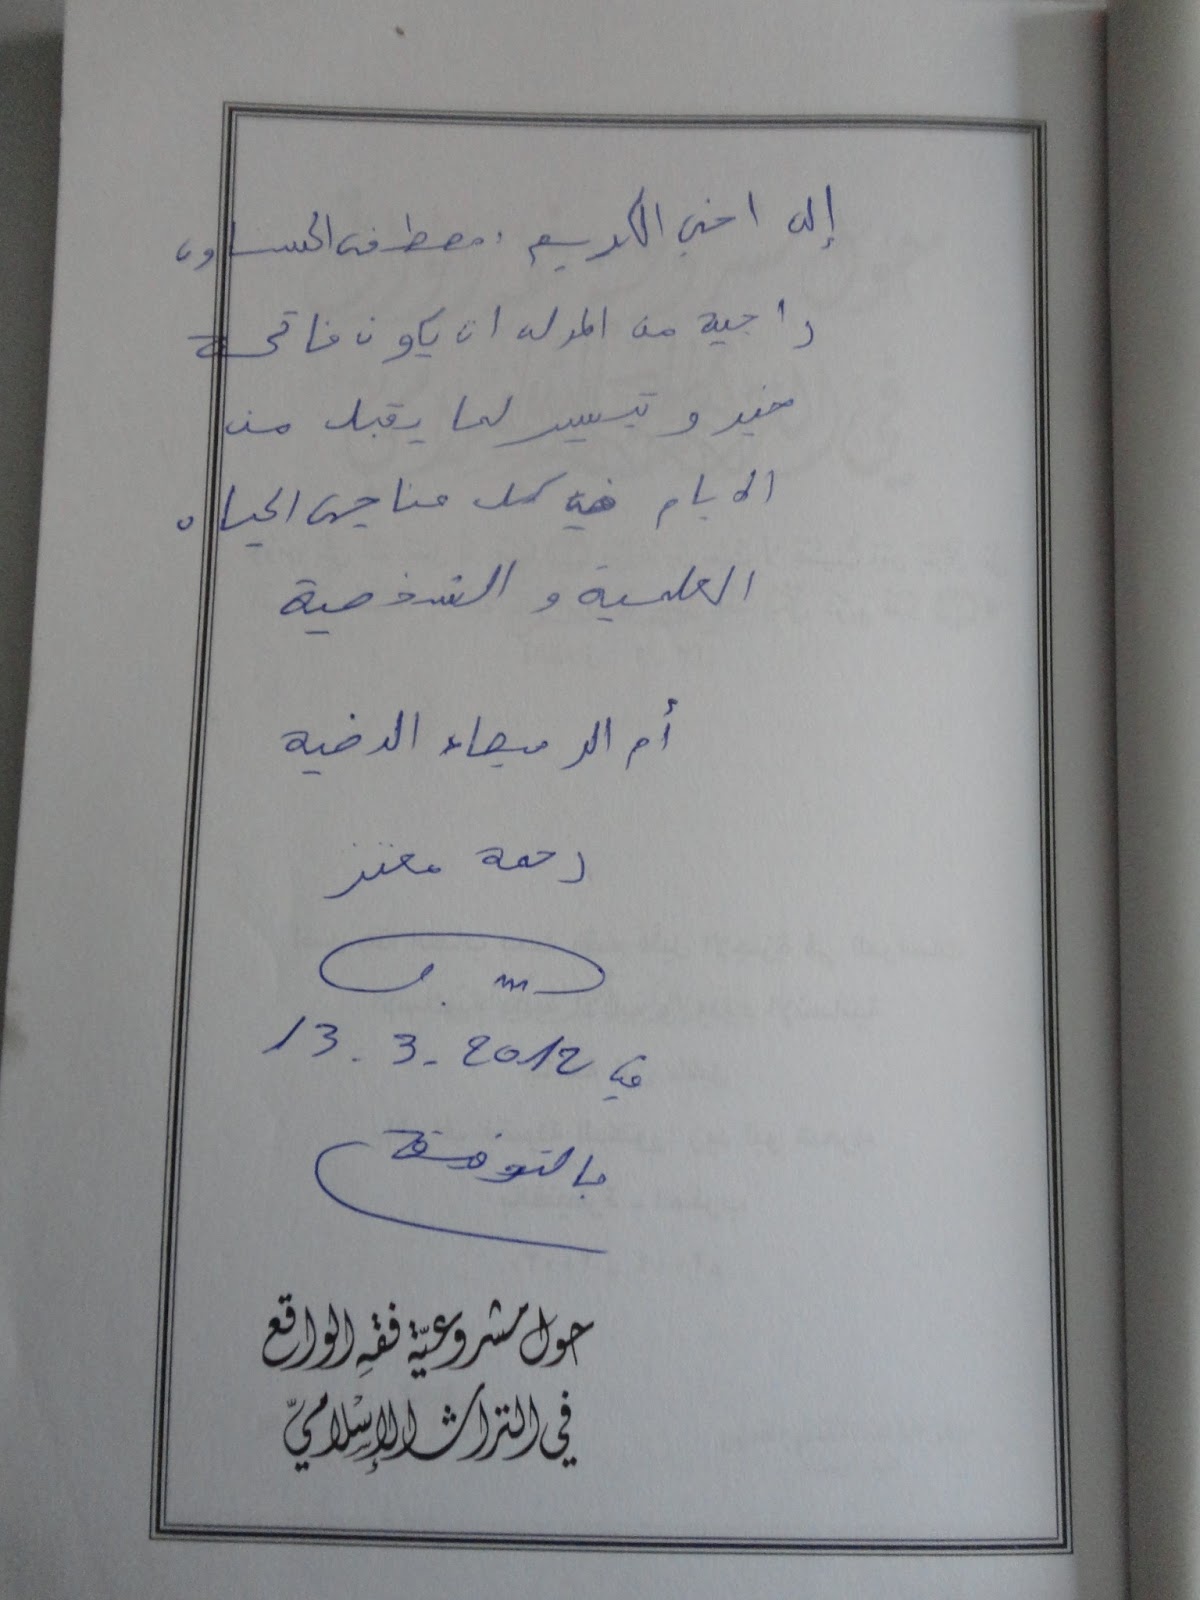 إلى اخي الكريم، مصطفى الحسناوي
راجية من المولى ان يكون فاتحة
خير و تيسير لما يقبل من
الايام في كل مناحي الحياة
العلمية و الشخصية
أم الرميصاء الرضية
رحمة معتز
في 13.3.2012
بالتوفيق
حول مشروعيّة فقه الواقع
في التراث الإسلاميّ